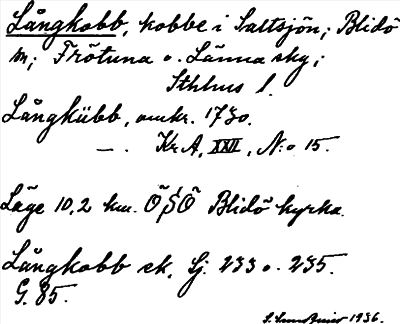 Långkobb, kobbe i Saltsjön; Blidö
sn; Frötuna o. Länna sky;
Sthlms l.
Långkübb, omkr. 1730.
—. Kr.A, XXII, N:o 15.
Läge 10,2 km. ÖSÖ Blidö kyrka.
Långkobb ek. Sj. 233 o. 235.
G. 85.
1936.